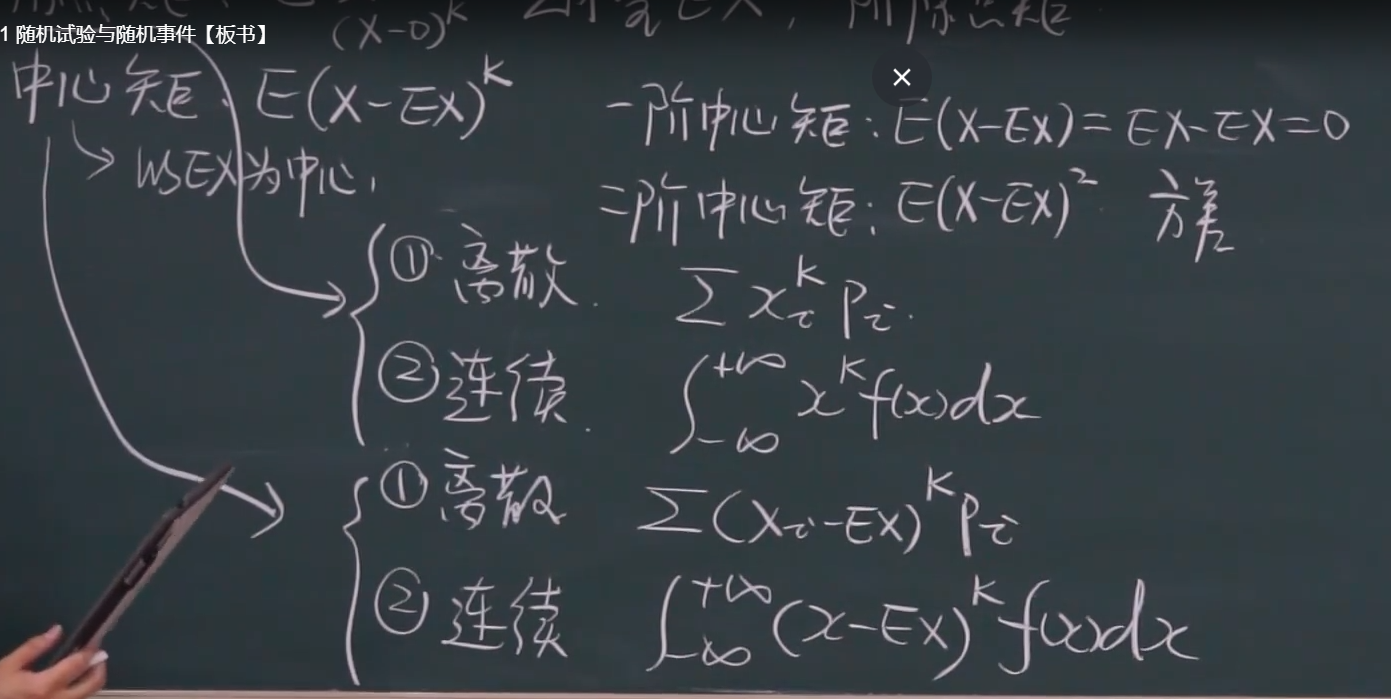 (X-0)^k EX,
1 随机试验与随机事件【板书】
中心矩、E(X-EX)^k
一阶中心矩:E(X-EX)=EX-EX=0
以EX为中心,
二阶中心矩:E(X-EX)^2 方差
① 离散. ∑x_i^k p_i.
② 连续. ∫_{-∞}^{+∞} x^k f(x)dx
① 离散 ∑(x_i-EX)^k p_i
② 连续 ∫_{-∞}^{+∞} (x-EX)^k f(x)dx